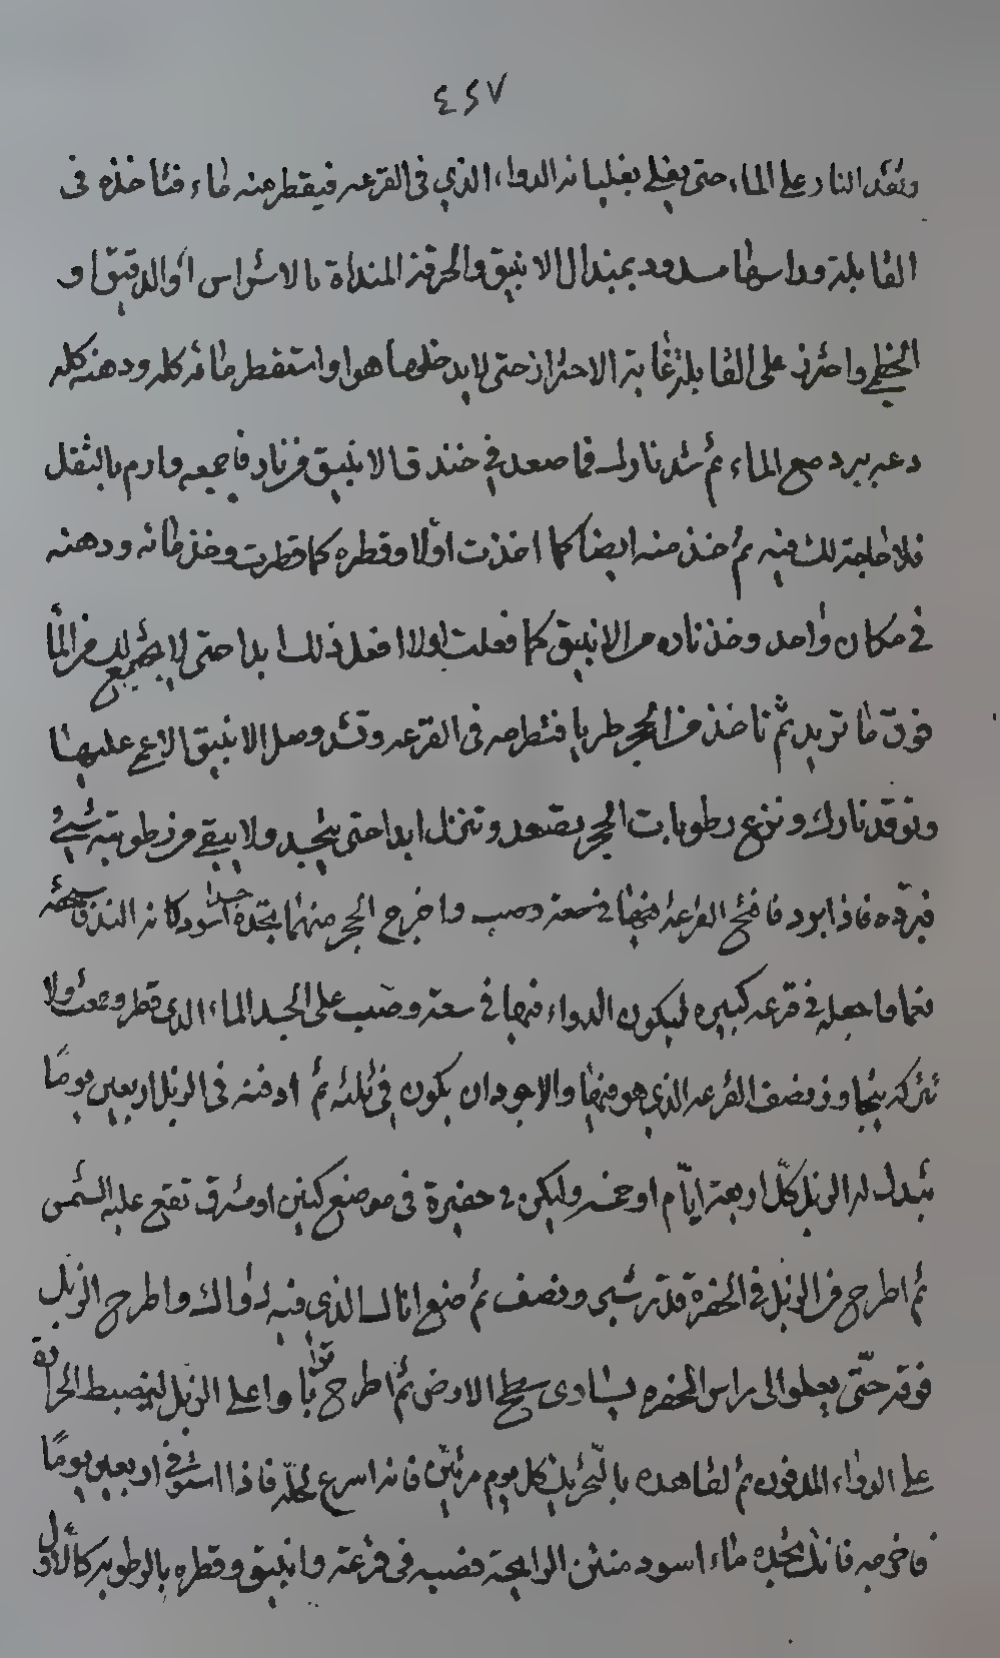 ٤٢٧
وتقد النار على الماء حتى يغلي بغليانه الدواء الذي في القرعه فيقطر منه ماء فتاخذه في
القابلة وراسها مسدود بمنديل الانبيق والخرقة المنداة بالاشراس او الدقيق او
الخطمي واحترز على القابلة غاية الاحتراز حتى لا يدخلها هوا واستقطر مائه كله ودهنه كله
دعه يبرد مع الماء ثم شد نارك فما صعد في خندق الانبيق فر نار فاجمعه وارم بالثقل
فلا حاجة لك فيه ثم خذ منه ايضا كما اخذت اولا وقطره كما قطرت وخذ مائه ودهنه
في مكان واحد وخذ ناره من الانبيق كما فعلت اولا افعل ذلك ابدا حتى لا يجتمع لك من الما
فوق ما تريد ثم تاخذ من الحجر طريا فتطرحه في القرعه وتشد وصل الانبيق الاعمى عليها
وتوقد نارك وتنزع رطوبات الحجر تصعد وتنزل ابدا حتى يتجسد ولا يبقى من رطوبته شيئ
فبرده فاذا برد فافتح القرعه فتحا في سعة واخرج الحجر منها تجده جسدا اسود كانه فاسحقه
نعما واجعله في قرعه كبيره ليكون الدواء فيها في سعة وصب على الجسد الماء الذي قطر وجمعت ولا
تتركه نصف القرعه الذي هو فيها والاجود ان يكون في ثلثه ثم ادفنه في الزبل اربعين يومًا
تبدل له الزبل كلّ اربعة ايّام او خمسه وليكن في حفيرة في موضع كنين او مشرق تقع عليه الشمس
ثم اطرح من الزبل في الحفرة قدر شبر ونصف ثم ضع اناك الذي فيه دواك واطرح الزبل
فوقه حتّى يعلوا الى راس الحفره يساوى سطح الارض ثم اطرح ترابا واعلى الزبل لينضبط الحرارة
على الدواء المدفون ثم تعاهده بالتّحريك كل يوم مرتين فانه اسرع لحلّه فاذا استوفى اربعين يومًا
فاخرجه فانك تجده ماء اسود منتن الرايحة فصبه في قرعة وانبيق وقطره بالرطوبه كالاول